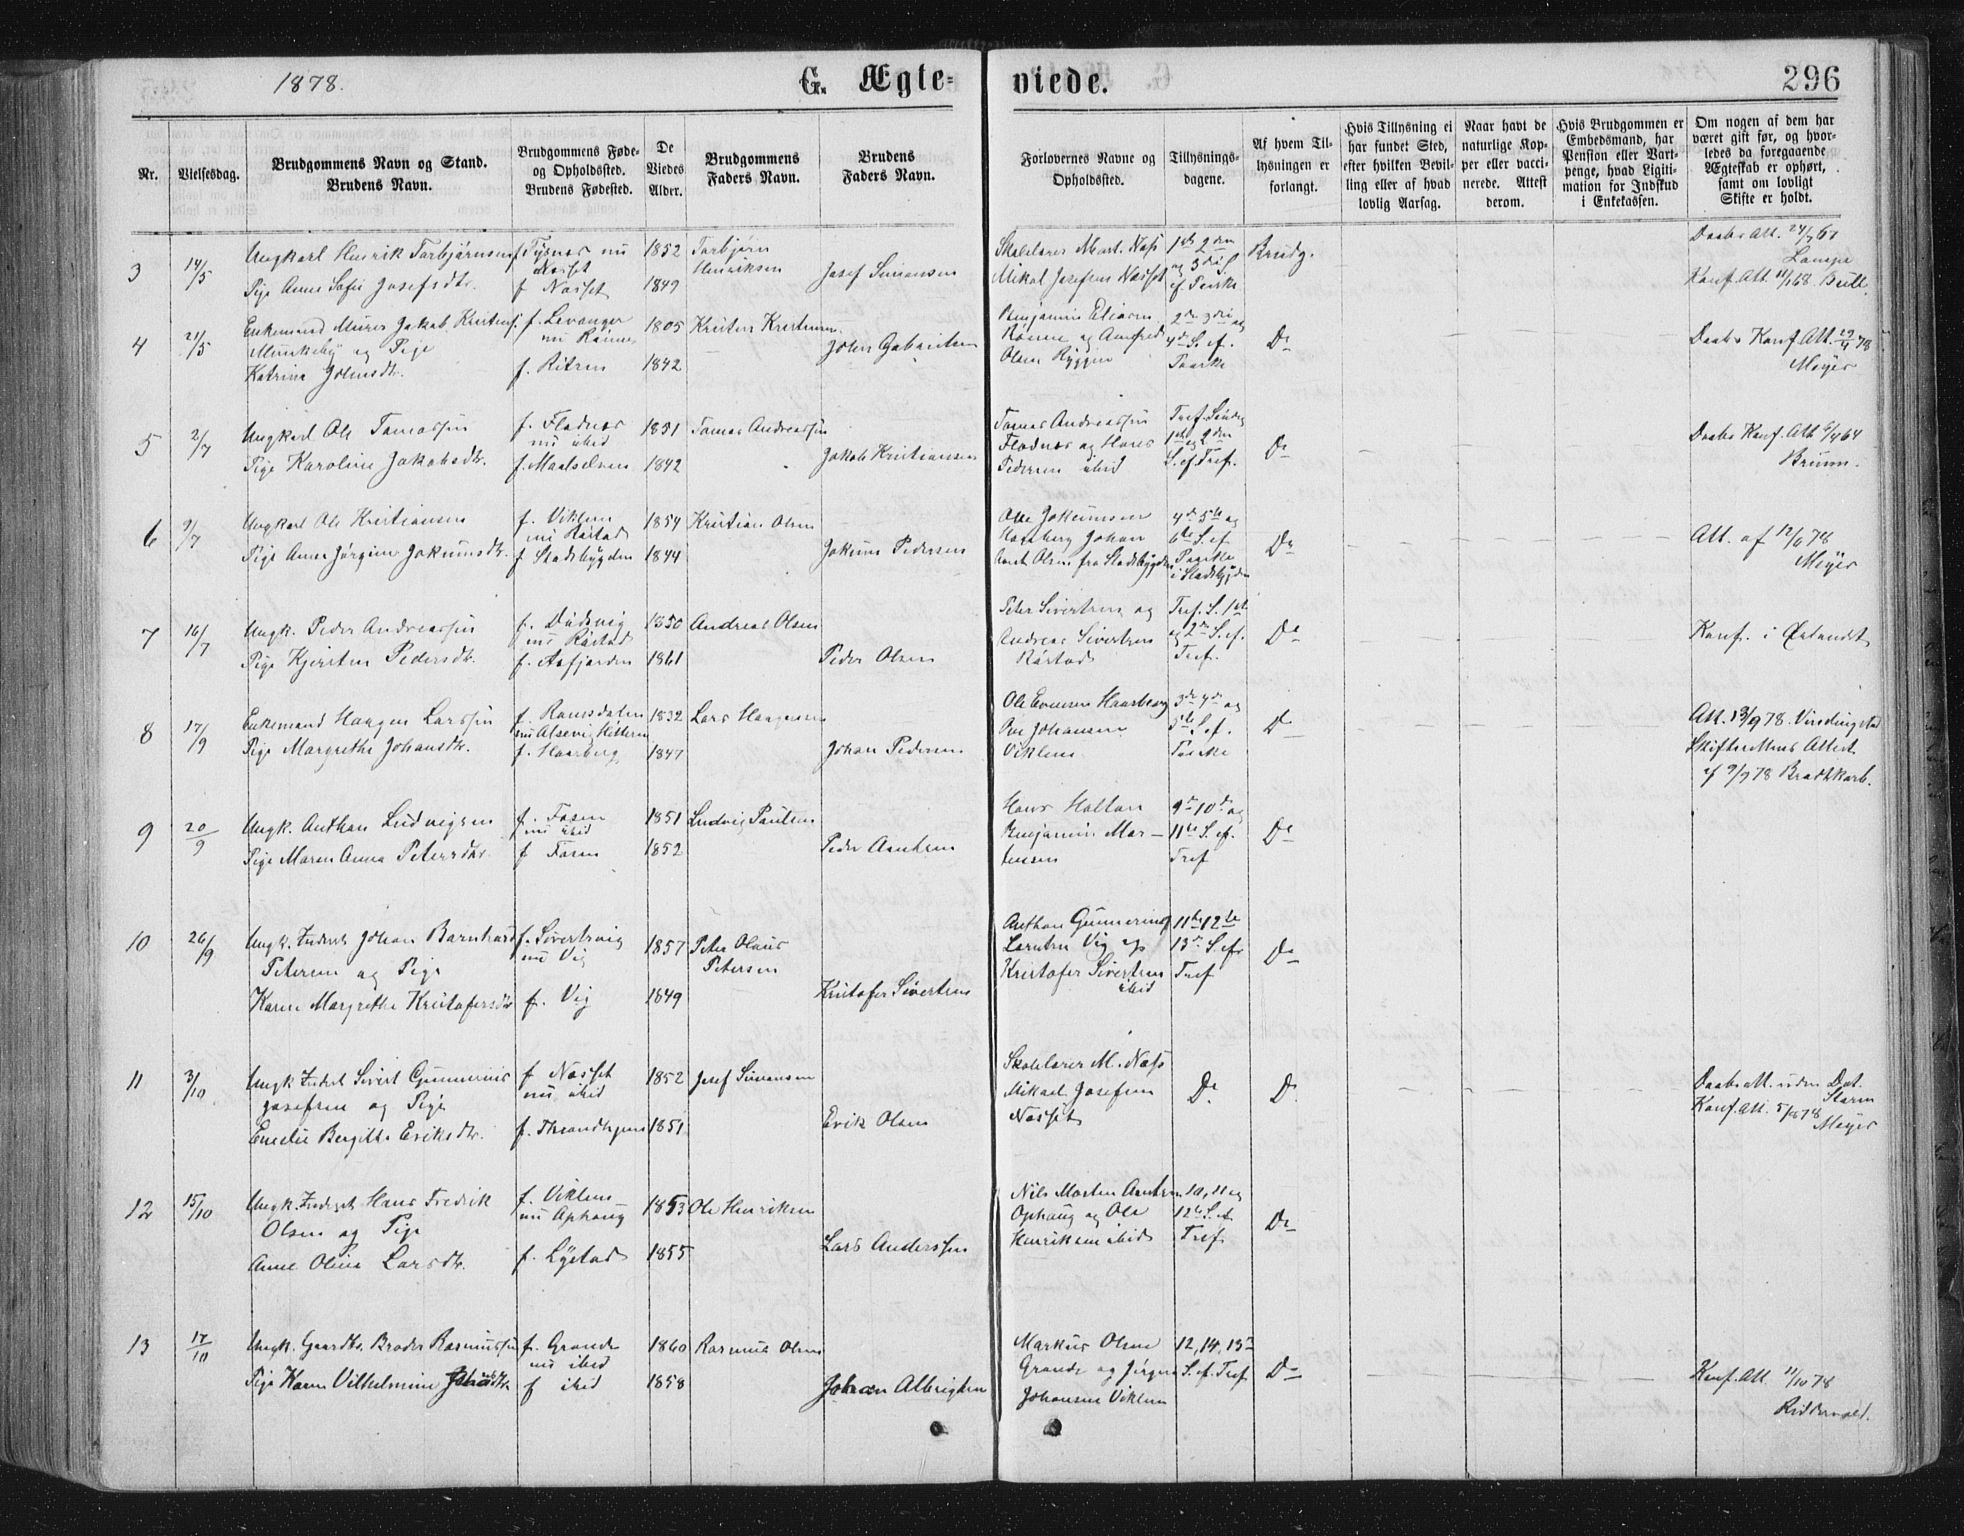 1878.
G. Ægte-
viede.
296
Nr.
Vielsesdag.
Brudgommens Navn og Stand.
Brudens Navn.
Brudgommens Føde-
og Opholdssted.
Brudens Fødested.
De
Viedes
Alder.
Brudgommens
Faders Navn.
Brudens
Faders Navn.
Forlovernes Navne og
Opholdssted.
Tillysnings-
dagene.
Af hvem Til-
lysningen er
forlangt.
Hvis Tillysning ei
har fundet Sted,
efter hvilken Bevil-
ling eller af hvad
lovlig Aarsag.
Naar havt de
naturlige Kop-
per eller vacci-
nerede. Attest
derom.
Hvis Brudgommen er
Embedsmand, har
Pension eller Vart-
penge, hvad Ligiti-
mation for Indskud
i Enkekassen.
Om nogen af dem har
været gift før, og hvor-
ledes da foregaaende
Ægteskab er ophørt,
samt om lovligt
Skifte er holdt.
3
14/5
Ungkarl Henrik Torbjørnsen
Pige Anne Sofie Josefsdtr.
f. Tysnes nu
Nasset
f Nasset
1852
1849
Torbjørn
Henriksen
Josef Simonsen
Skolelærer Mart. Næss
Mikal Josefsen Nasset
1ste 2den
og 3die S.
ef Paaske
Brudg.
Konf. Att.
4
21/5
Enkemand Murer Jakob Kristens.
Munkeby og Pige
Katrine Johnsdtr.
f. Levanger
f. Ritsen
1805
1842
Kristen Kristensen
John Gabrielsen
Benjamin
Olsen Ryggen
2den 3die og
4de S. ef.
Paaske
Do
Daabs Konf. Att. 29/4 78
Meyer
5
2/7
Ungkarl Ole Tomassen
Pige Karoline Jakobsdtr.
f. Flodnes
nu ibid
f. Maalselven
1851
1842
Tomas Andreassen
Jakob Kristiansen
Tomas Andreassen
Flodnes og Hans
Pedersen ibid
Tref. Søndag
1ste og 2den
S. ef Tref.
Do
Daabs Konf. Att 6/7 64
Bruun.
6
9/7
Ungkarl Ole Kristiansen
Pige Anne Jørgine Jokumsdtr.
f. Viklem
nu Røstad
f Stadsbygden
1854
1844
Kristian Olsen
Jokum Pedersen
Olsen fra Stadsbygden
4de 5te og
6te S. ef
Paaske
i Stadsbygden
Do
Att. af 12/6 78
Meyer
7
16/7
Ungk. Peder Andreassen
Pige Kjersten Pedersdtr.
f. Dødsvig
nu Røstad
f. Aafjorden
1850
1861
Andreas Olsen
Peder Olsen
Peter Sivertsen og
Andreas Sivertsen
Røstad
Tref. S. 1ste
og 2den S. ef.
Tref.
Do
Konf. i Ørlandet
8
17/9
Enkemand Haagen Larssen
Pige Margrethe Johansdtr.
f. Romsdalen
f. Haarberg
1832
1847
Lars Haagensen
Johan Pedersen
Ole Evensen Haarberg
Ove Johansen
Viklem
3die 4de og
5te S. ef.
Paaske
Do
Att. 13/9 78
af 9/9 78
9
20/9
Ungk. Anthon Ludvigsen
Pige Maren Anna Petersdtr.
f. Fosen
nu ibid
f Fosen
1851
1852
Ludvig Paulsen
Peder Aantsen
Hans Holtan
Benjamin Mor-
tensen
9de 10de og
11te S. ef.
Tref
Do
10
26/9
Johan Barnhard
Petersen og Pige
Karen Margrethe Kristofersdtr
f. Sivertsvig
nu Vig
f. Vig
1857
1849
Peter Olaus
Petersen
Kristofer Sivertsen
Anthon Gunnerius
Larsen Vig og
Kristofer Sivertsen
ibid
11te 12te
13de S. ef
Tref
Do
11
3/10
Sivert Gunnerius
Josefsen og Pige
Emelie Bergitte Eriksdtr.
f Nasset
nu ibid
f. Throndhjem
1852
1851
Josef Simonsen
Erik Olsen
Skolelærer M. Næss
Mikael Josefsen
Nasset
Do
Do
Daabs Att. uden Dat.
Storm
Konf. Att. 5/10 78
Meyer
12
15/10
Hans Fredrik
Olsen og Pige
Anne Oline Larsdtr.
f. Viklem
nu Ophaug
f. Lystad
1853
1855
Ole Henriksen
Lars Anderssen
Nils Morten Aantsen
Ophaug og Ole
Henriksen ibid
10, 11 og
12te S. ef
Tref
Do
13
17/10
Ungk. Gaardbr. Broder Rasmussen
Pige Karen Vilhelmine
f. Grande
nu ibid
f ibid
1860
1858
Rasmus Olsen
Johan Albrigtsen
Markus Olsen
Grande og Jørgen
Johansen Viklem
12, 14, 13de
S. ef. Tref
Do
Konf. Att. 11/10 78
Riddervold.